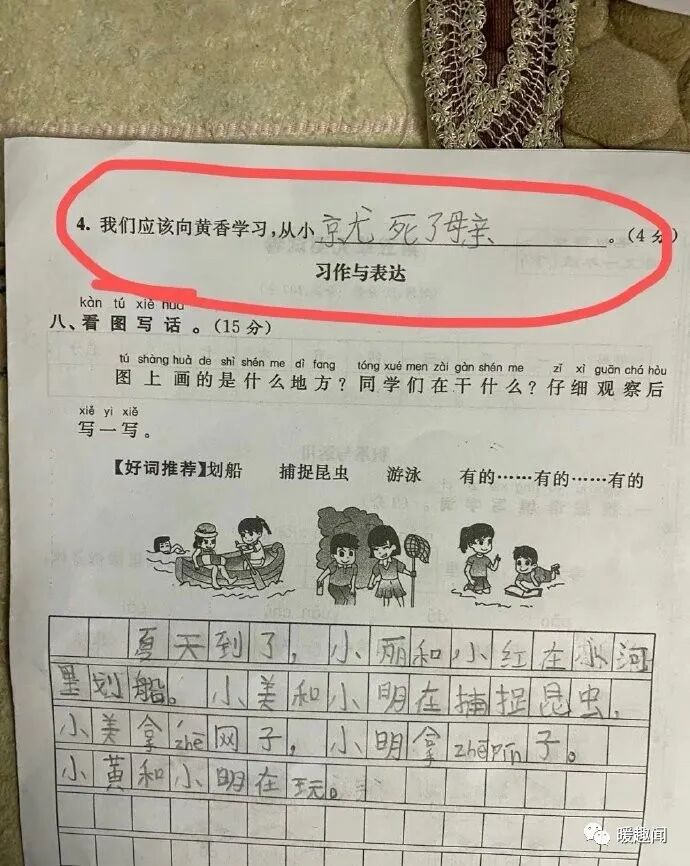 4. 我们应该向黄香学习,从小 京尤 死了母亲 。(4分)
习作与表达
kàn tú xiě huà
八、看图写话。(15分)
tú shàng huà de shì shén me dì fang tóng xué men zài gàn shén me zǐ xì guān chá hòu
图上画的是什么地方?同学们在干什么?仔细观察后
xiě yi xiě
写一写。
【好词推荐】划船 捕捉昆虫 游泳 有的……有的……有的
夏天到了,小丽和小红在小河
里划船。小美和小明在捕捉昆虫,
小美拿zhē网子,小明拿zhē pín子。
小黄和小明在玩。
暖趣闻